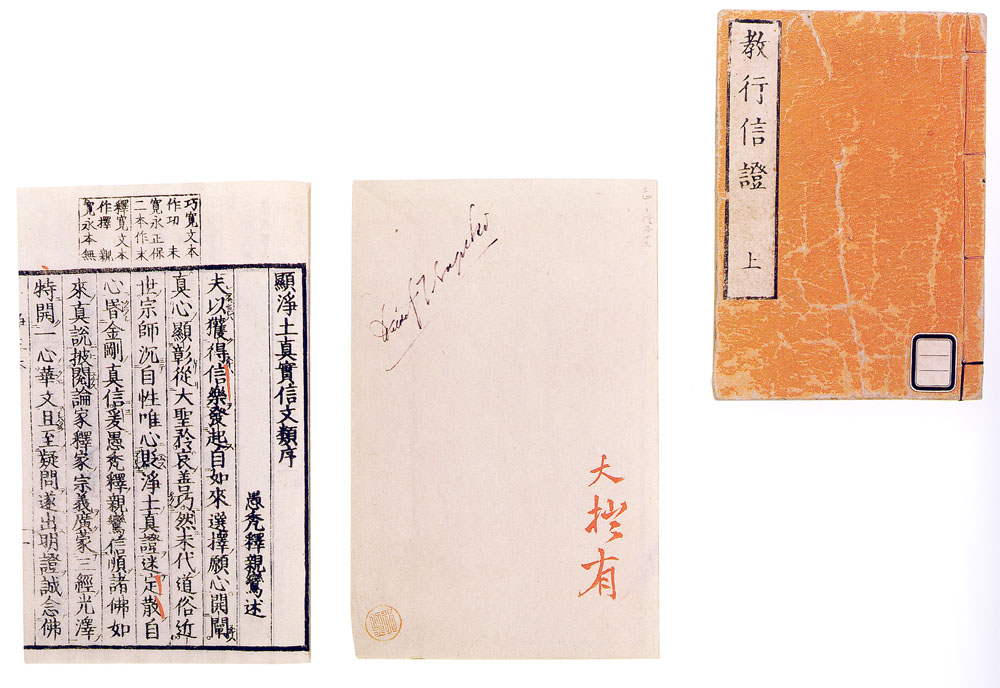 教行信證
上
大拙有
巧寛文本
作功 未
寛永正保
二本作末
釋寛文本
作擇 親
寛永本無
顯淨土真實信文類序
愚禿釋親鸞述
夫以獲得信樂發起自如來選擇願心開闡
真心顯彰從大聖矜哀善巧然未代道俗近
世宗師沉自性唯心貶淨土真證迷定散自
心昏金剛真信爰愚禿釋親鸞信順諸佛如
來真說披閱論家釋家宗義廣蒙三經光澤
特開一心華文且至疑問遂出明證誠念佛